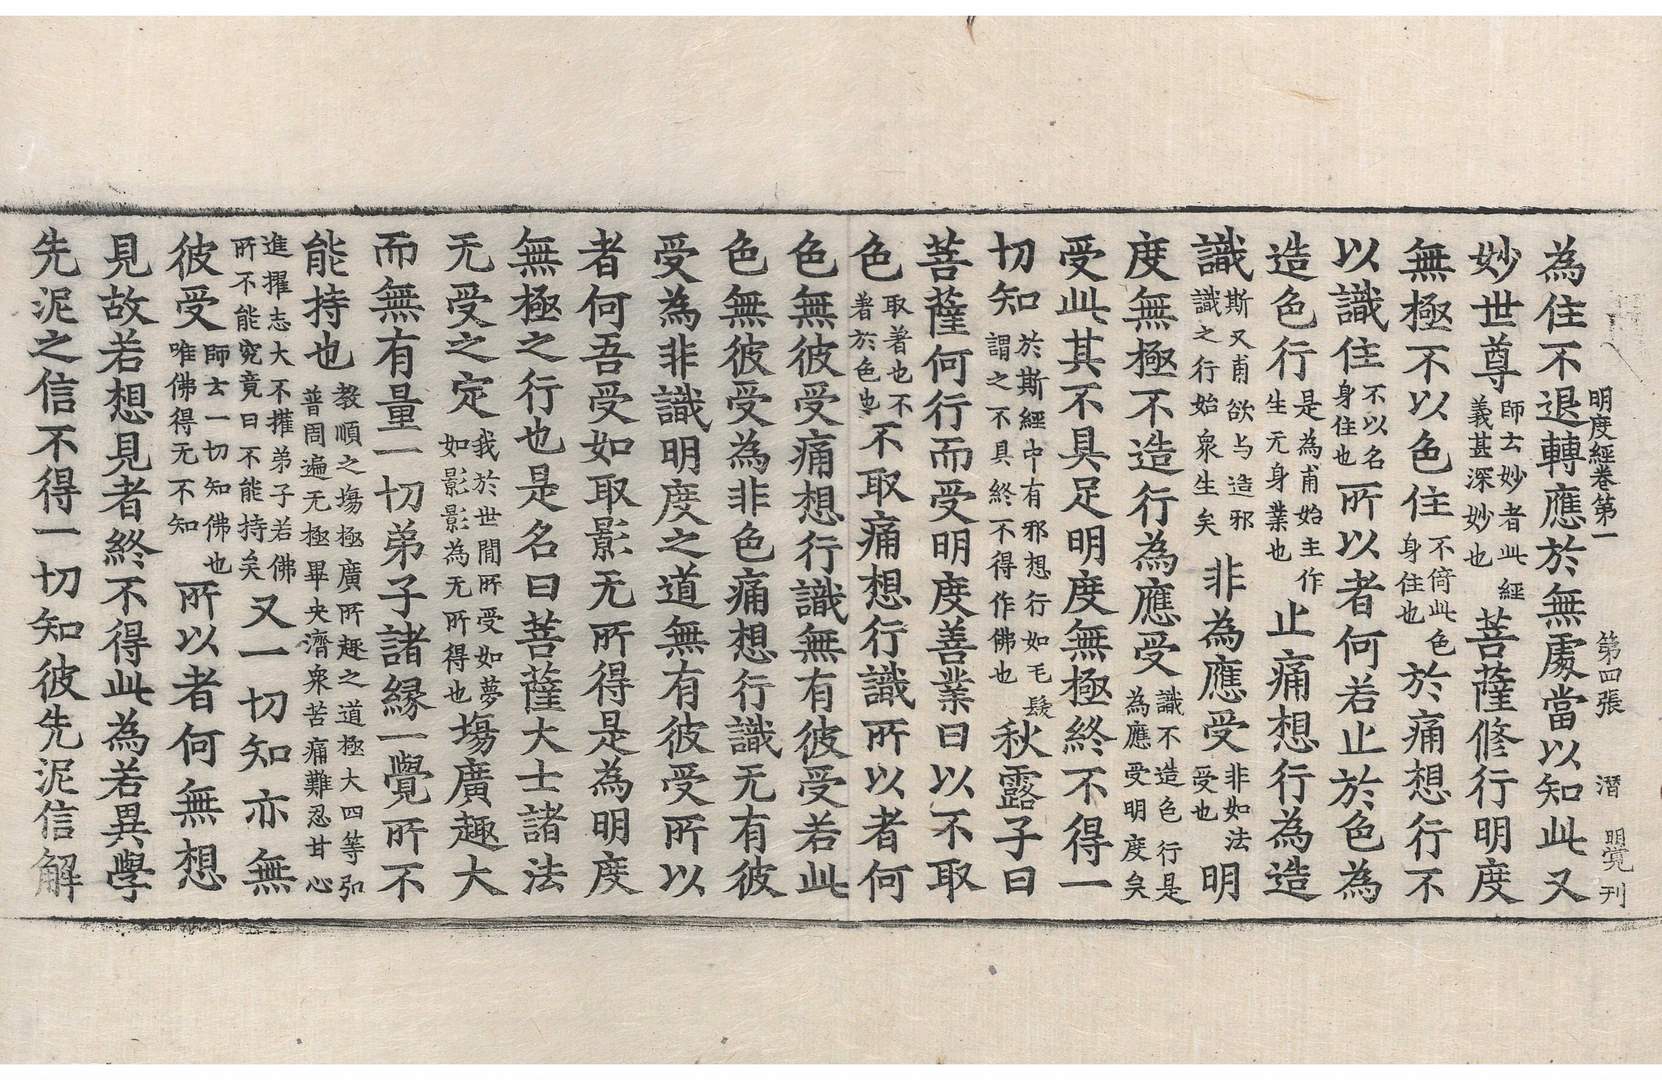 明度經卷第一 第四張 潛 覺刊
為住不退轉應於無處當以知此又
妙世尊師云妙者此經義甚深妙也菩薩修行明度
無極不以色住不倚此色身住也於痛想行不
以識住不以名身住也所以者何若止於色為
造色行是為甫始主作生无身業也止痛想行為造
識斯又甫欲与造邪識之行始衆生矣非為應受非如法受也明
度無極不造行為應受識不造色行是為應受明度矣
受此其不具足明度無極終不得一
切知於斯經中有邪想行如毛髮謂之不具終不得作佛也秋露子曰
菩薩何行而受明度善業曰以不取
色取著也不著於色也不取痛想行識所以者何
色無彼受痛想行識無有彼受若此
色無彼受為非色痛想行識无有彼
受為非識明度之道無有彼受所以
者何吾受如取影无所得是為明度
無極之行也是名曰菩薩大士諸法
无受之定我於世間所受如夢如影影為无所得也場廣趣大
而無有量一切弟子諸緣一覺所不
能持也教順之場極廣所趣之道極大四等弘普周遍无極畢央濟衆苦痛難忍甘心
進擢志大不擢弟子若佛所不能究竟曰不能持矣又一切知亦無
彼受師云一切知佛也唯佛得无不知所以者何無想
見故若想見者終不得此為若異學
先泥之信不得一切知彼先泥信解